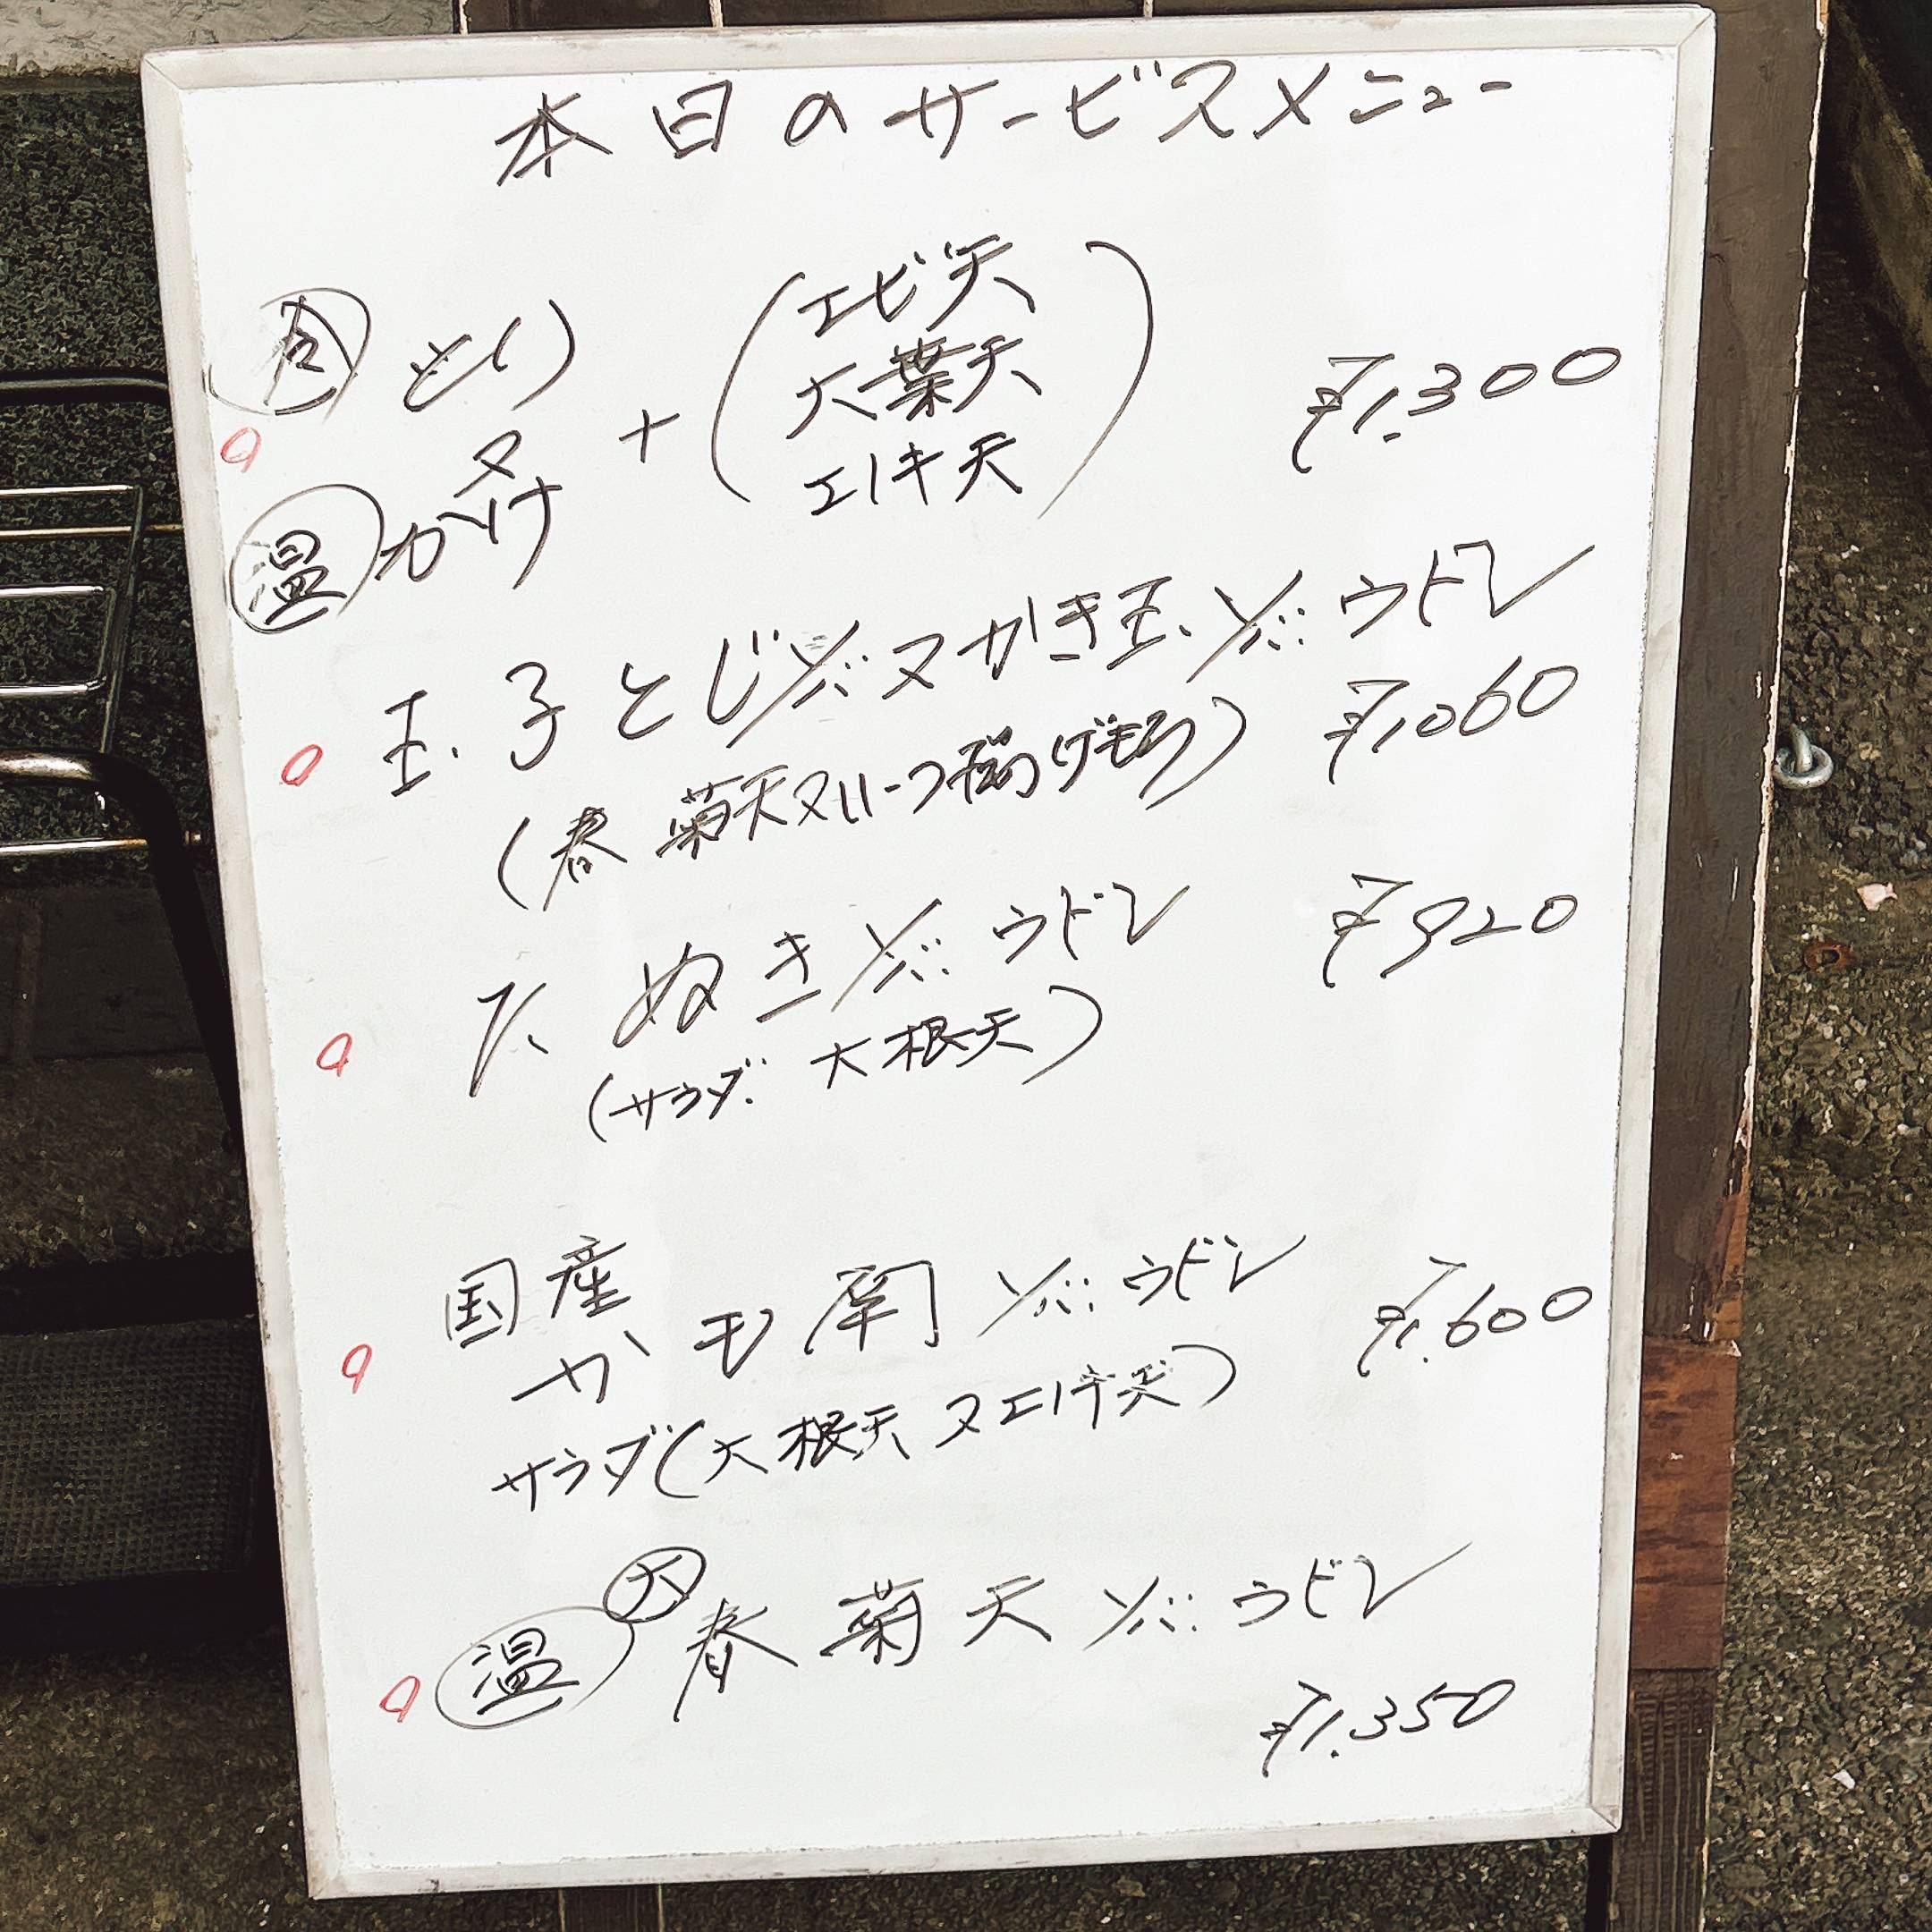 本日のサービスメニュー
とり
温 かけ
又
+
(エビ天
大葉天
エノキ天)
¥1.300
玉子とじソバ又かき玉ソバ.ウドン
(春菊天又は
¥1,060
たぬきソバ.ウドン
(サラダ. 大根天)
¥920
国産
かも南ソバ.ウドン
サラダ(大根天又エノキ天)
¥1.600
温 大 春菊天ソバ.ウドン
¥1.350